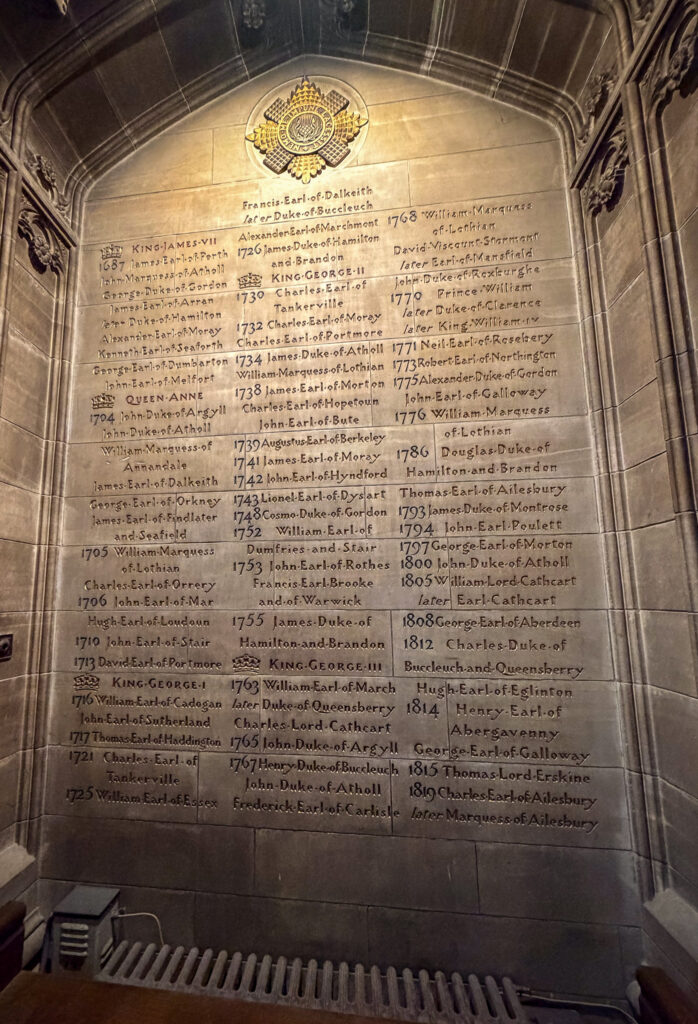 NEMO ME IMPUNE LACESSIT
KING·JAMES·VII
1687 James·Earl·of·Perth
John·Marquess·of·Atholl
George·Duke·of·Gordon
James·Earl·of·Arran
later Duke·of·Hamilton
Alexander·Earl·of·Moray
Kenneth·Earl·of·Seaforth
George·Earl·of·Dumbarton
John·Earl·of·Melfort
QUEEN·ANNE
1704 John·Duke·of·Argyll
John·Duke·of·Atholl
William·Marquess·of
Annandale
James·Earl·of·Dalkeith
George·Earl·of·Orkney
James·Earl·of·Findlater
and·Seafield
1705 William·Marquess
of·Lothian
Charles·Earl·of·Orrery
1706 John·Earl·of·Mar
Hugh·Earl·of·Loudoun
1710 John·Earl·of·Stair
1713 David·Earl·of·Portmore
KING·GEORGE·I
1716 William·Earl·of·Cadogan
John·Earl·of·Sutherland
1717 Thomas·Earl·of·Haddington
1721 Charles·Earl·of
Tankerville
1725 William·Earl·of·Essex
Francis·Earl·of·Dalkeith
later Duke·of·Buccleuch
Alexander·Earl·of·Marchmont
1726 James·Duke·of·Hamilton
and·Brandon
KING·GEORGE·II
1730 Charles·Earl·of
Tankerville
1732 Charles·Earl·of·Moray
Charles·Earl·of·Portmore
1734 James·Duke·of·Atholl
William·Marquess·of·Lothian
1738 James·Earl·of·Morton
Charles·Earl·of·Hopetoun
John·Earl·of·Bute
1739 Augustus·Earl·of·Berkeley
1741 James·Earl·of·Moray
1742 John·Earl·of·Hyndford
1743 Lionel·Earl·of·Dysart
1748 Cosmo·Duke·of·Gordon
1752 William·Earl·of
Dumfries·and·Stair
1753 John·Earl·of·Rothes
Francis·Earl·Brooke
and·of·Warwick
1755 James·Duke·of
Hamilton·and·Brandon
KING·GEORGE·III
1763 William·Earl·of·March
later Duke·of·Queensberry
Charles·Lord·Cathcart
1765 John·Duke·of·Argyll
1767 Henry·Duke·of·Buccleuch
John·Duke·of·Atholl
Frederick·Earl·of·Carlisle
1768 William·Marquess
of·Lothian
David·Viscount·Stormont
later Earl·of·Mansfield
John·Duke·of·Roxburghe
1770 Prince·William
later Duke·of·Clarence
later King·William·IV
1771 Neil·Earl·of·Rosebery
1773 Robert·Earl·of·Northington
1775 Alexander·Duke·of·Gordon
John·Earl·of·Galloway
1776 William·Marquess
of·Lothian
1786 Douglas·Duke·of
Hamilton·and·Brandon
Thomas·Earl·of·Ailesbury
1793 James·Duke·of·Montrose
1794 John·Earl·Poulett
1797 George·Earl·of·Morton
1800 John·Duke·of·Atholl
1805 William·Lord·Cathcart
later Earl·Cathcart
1808 George·Earl·of·Aberdeen
1812 Charles·Duke·of
Buccleuch·and·Queensberry
Hugh·Earl·of·Eglinton
1814 Henry·Earl·of
Abergavenny
George·Earl·of·Galloway
1815 Thomas·Lord·Erskine
1819 Charles·Earl·of·Ailesbury
later Marquess·of·Ailesbury